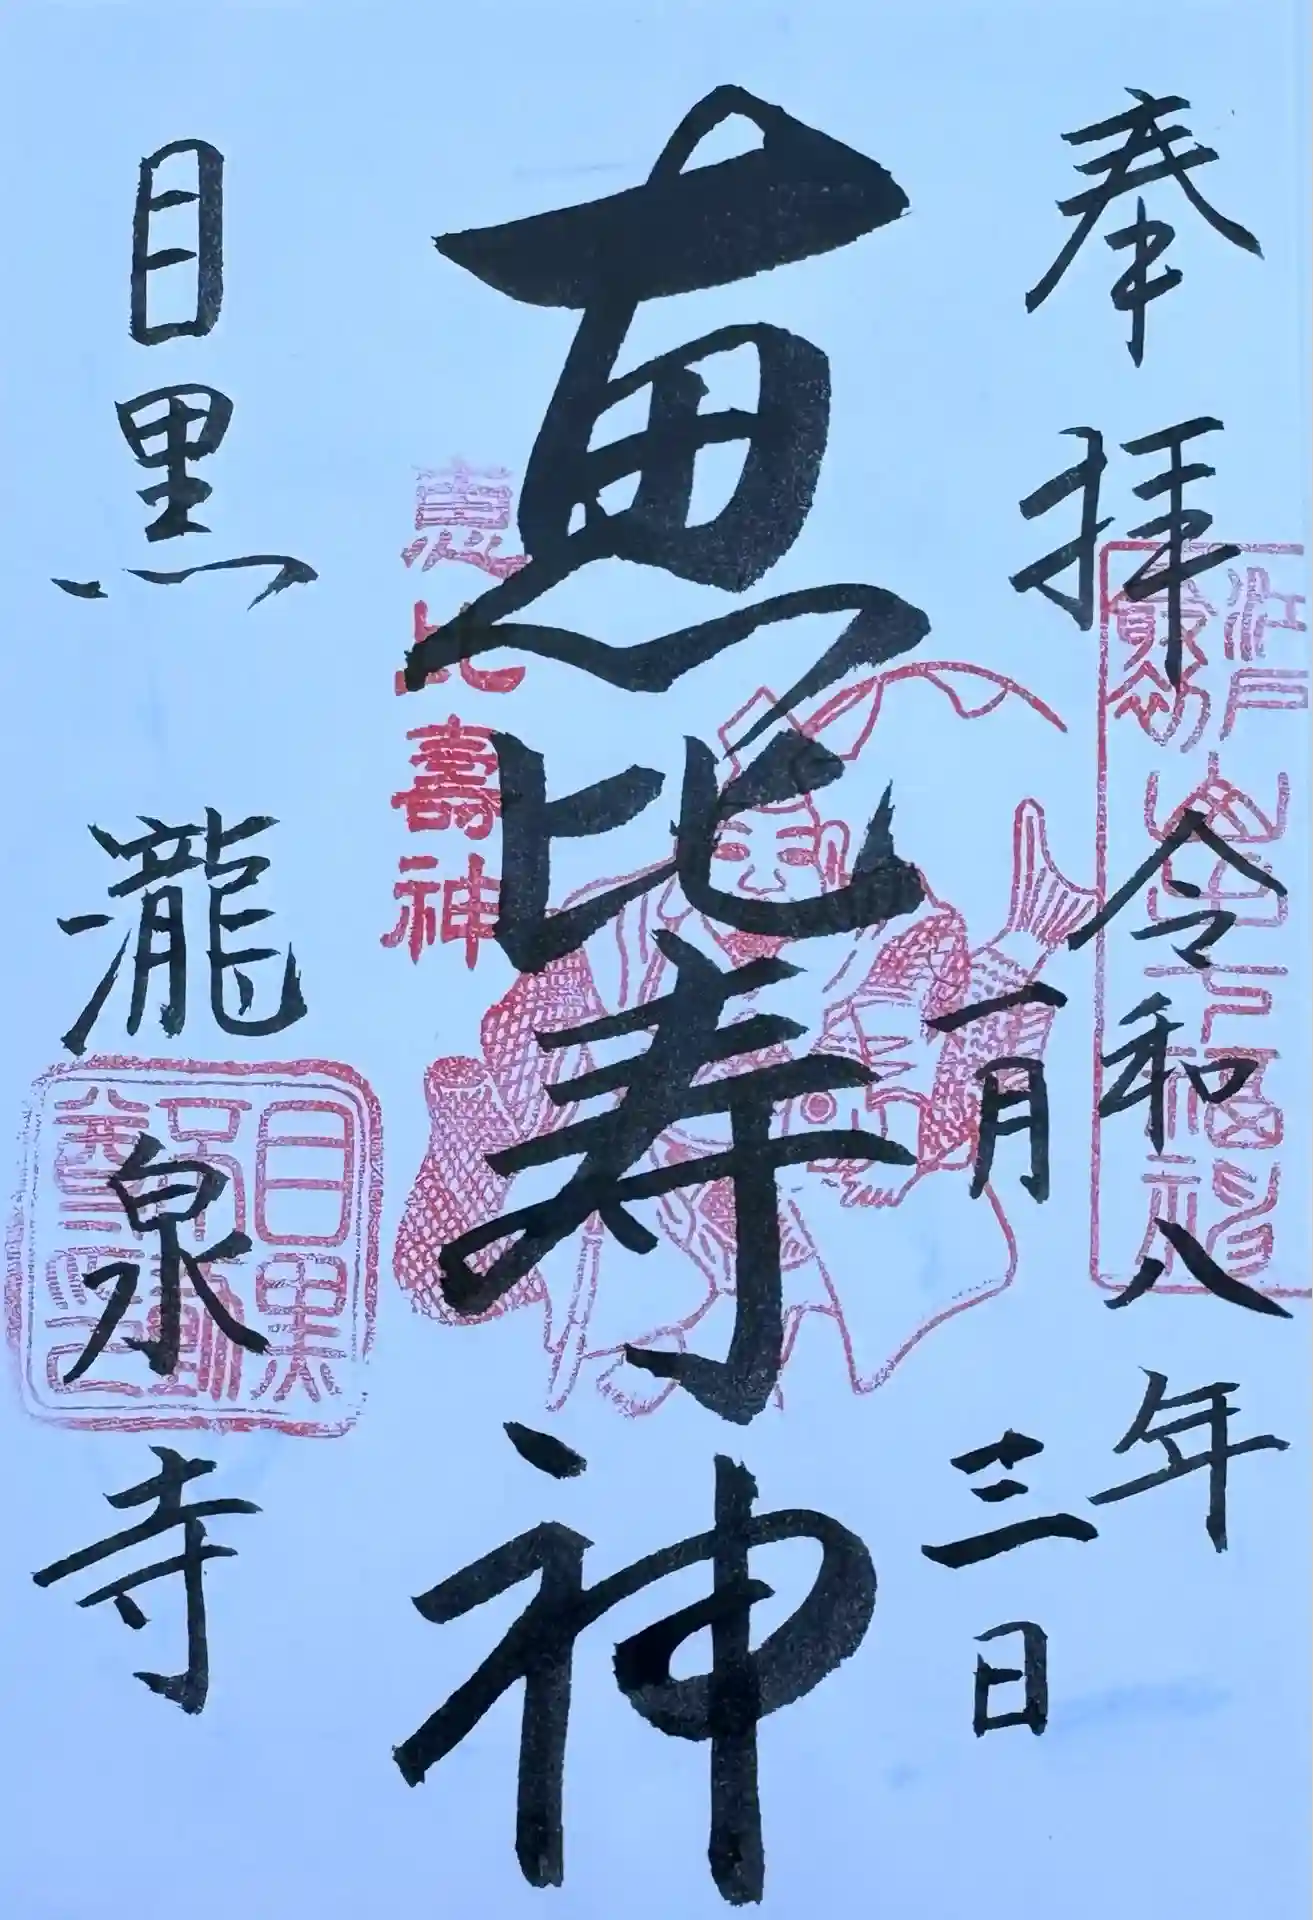 奉拝
令和八年
一月三日
恵比寿神
恵比壽神
目黒瀧泉寺
江戸最初山手七福神